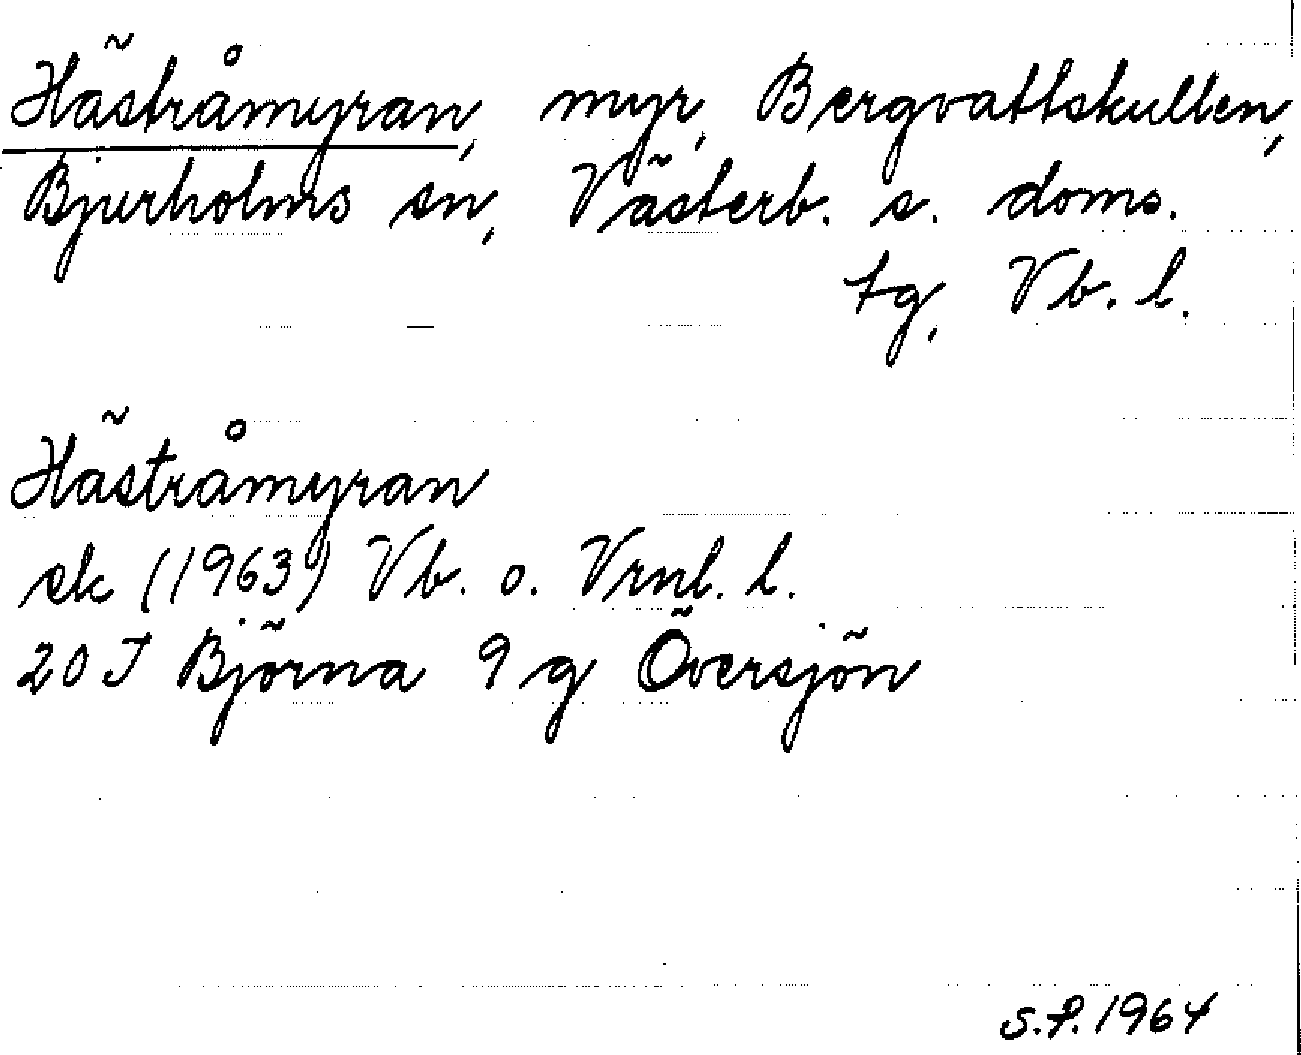 Hästråmyran, myr, Bergvattskullen,
Bjurholms sn, Västerb. s. doms.
tg, Vb. l.
Hästråmyran
ek (1963) Vb. o. Vrnl. l.
20 J Björna 9 g Översjön
S.P. 1964